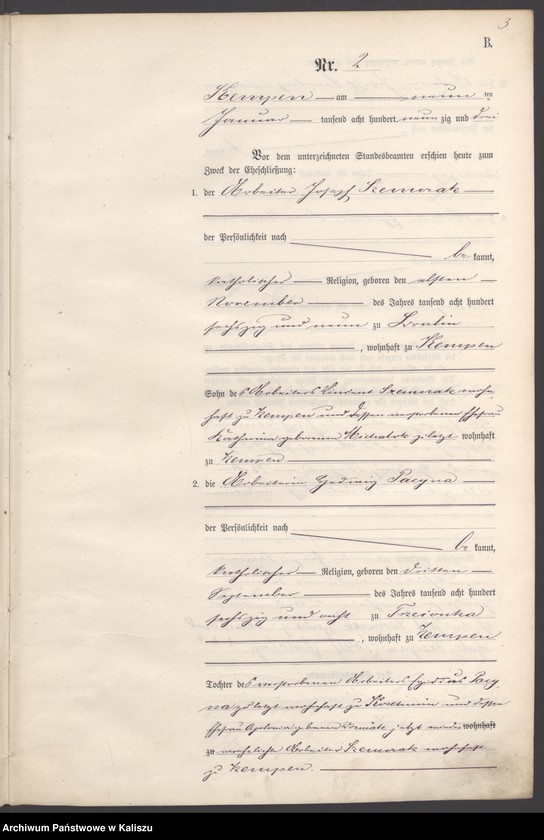 3
B.
Nr. 2
Kempen am neun ten
Januar tausend acht hundert neun zig und drei
Vor dem unterzeichneten Standesbeamten erschien heute zum
Zweck der Eheschließung:
1. der Arbeiter Josef Szemorak
der Persönlichkeit nach
be kannt,
katholischer Religion, geboren den elften
November des Jahres tausend acht hundert
sechszig und neun zu Bralin
, wohnhaft zu Kempen
Sohn des Arbeiters Vincent Szemorak wohn-
haft zu Kempen und dessen verstorbenen Ehefrau
Katharina geborenen Michalak zuletzt wohnhaft
zu Kempen
2. die Arbeiterin Hedwig Pacyna
der Persönlichkeit nach
be kannt,
katholischer Religion, geboren den dritten
September des Jahres tausend acht hundert
sechszig und acht zu Trzcionka
, wohnhaft zu Kempen
Tochter des verstorbenen Arbeiters Egidius Pacy-
na zuletzt wohnhaft zu und dessen
Ehefrau Apolonia geborenen jetzt wieder wohnhaft
zu verehelichte Arbeiter Szemorak wohnhaft
zu Kempen.
Archiwum Państwowe w Kaliszu